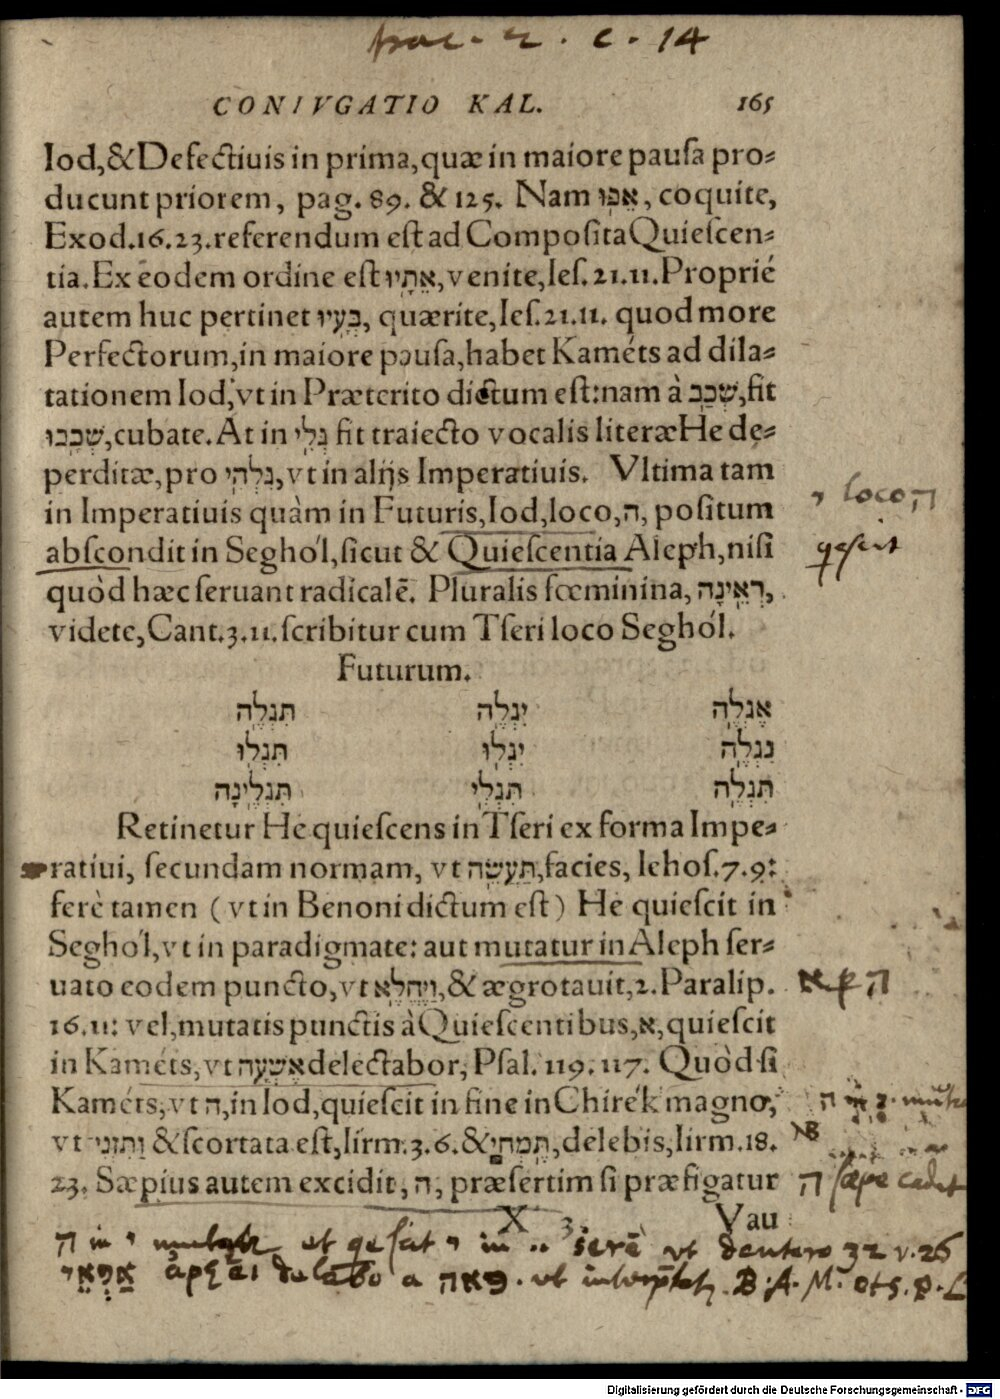 c. 14
CONIVGATIO KAL. 165
Iod,&Defectiuis in prima,quæ in maiore pausa pro-
ducunt priorem, pag. 89. & 125. Nam אֵפֽוּ, coquite,
Exod.16.23.referendum est ad Composita Quiescen-
tia.Ex eodem ordine est אֵתָֽיוּ,venite,Ies.21.11.Proprié
autem huc pertinet בְּעָֽיוּ, quærite,Ies.21.11. quod more
Perfectorum,in maiore pausa,habet Kaméts ad dila-
tationem Iod,vt in Præterito dictum est:nam à שְׁכַֽב,fit
שְׁכָֽבוּ,cubate.At in גְּלִֽי fit traiecto vocalis literæ He de-
perditæ,pro גִּלְהִֽי,vt in alijs Imperatiuis. Vltima tam
in Imperatiuis quàm in Futuris,Iod,loco,ה, positum
abscondit in Seghól,sicut & Quiescentia Aleph,nisi
quòd hæc seruant radicalē. Pluralis fœminina, רְאֶֽינָה,
videte,Cant.3.11.scribitur cum Tseri loco Seghól.
Futurum.
אֶגְלֶֽה יִגְלֶֽה תִּגְלֶֽה
נִגְלֶֽה יִגְלֽוּ תִּגְלֽוּ
תִּגְלֶֽה תִּגְלִֽי תִּגְלֶֽינָה
Retinetur He quiescens in Tseri ex forma Impe-
ratiui, secundam normam, vt תַּעֲשֵֽׂה,facies, Iehos.7.9:
ferè tamen (vt in Benoni dictum est) He quiescit in
Seghól,vt in paradigmate: aut mutatur in Aleph ser-
uato eodem puncto,vt וַיֶּחֱלֶֽא,& ægrotauit,2.Paralip.
16.11: vel,mutatis punctis à Quiescentibus,א,quiescit
in Kaméts,vt אֶשְׁעָֽה delectabor, Psal. 119.117. Quòd si
Kaméts,vt ה,in Iod,quiescit in fine in Chirék magno,
vt וַתִּזְנִי & scortata est,Iirm.3.6.& תֶּֽמְחִי,delebis,Iirm.18.
23. Sæpius autem excidit,ה, præsertim si præfigatur
X 3 Vau
י loco ה
qescit
ה p א
ה in י
NB
ה sæpe cadit
ה in י mutatur et qescit י in .. ut deutero 32 v.26
אַפְאֵי delebo a פאה. ut B.A.M.
Digitalisierung gefördert durch die Deutsche Forschungsgemeinschaft - DFG